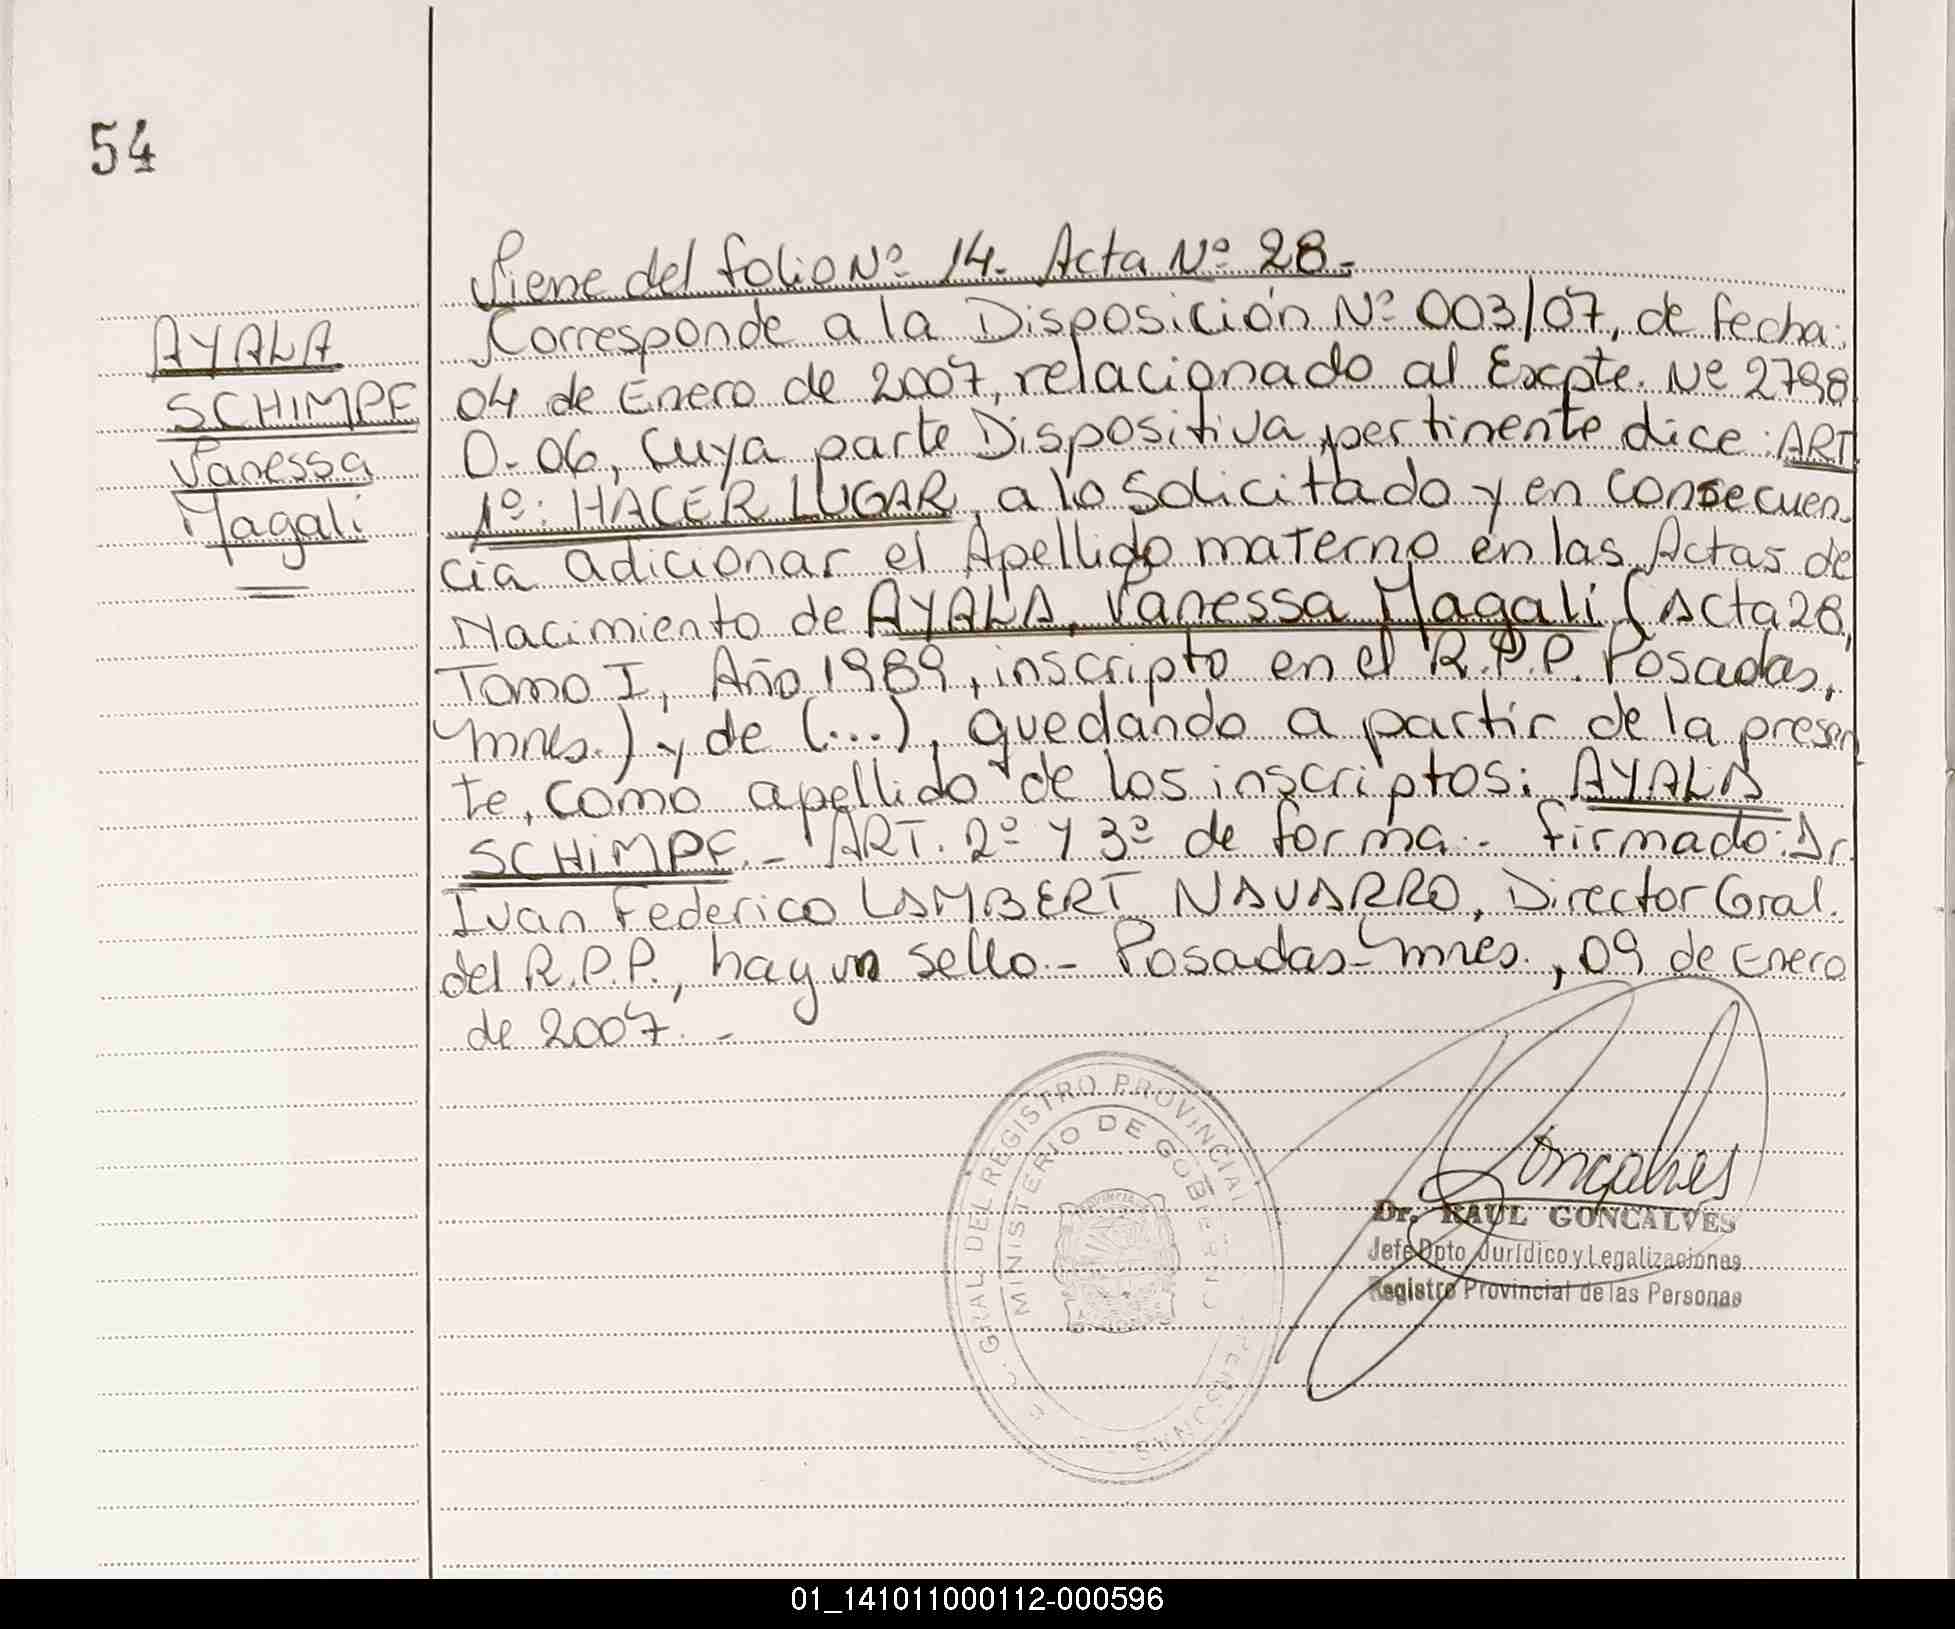 54
Viene del folio Nº 14. Acta Nº 28.-
AYALA
SCHIMPF
Vanessa
Magali
Corresponde a la Disposición Nº 003/07, de fecha:
04 de Enero de 2007, relacionado al Excpte. Nº 2798
D-06, cuya parte Dispositiva, pertinente dice: ART.
1º: HACER LUGAR, a lo solicitado y en consecuen-
cia adicionar el Apellido materno en las Actas de
Nacimiento de AYALA, Vanessa Magali (Acta 28,
Tomo I, Año 1989, inscripto en el R.P.P. Posadas,
Mnes.) y de (...), quedando a partir de la presen-
te, como apellido de los inscriptos: AYALA
SCHIMPF.- ART. 2º y 3º de forma.- firmado: Dr.
Ivan Federico LAMBERT NAVARRO, Director Gral.
del R.P.P., hay un sello.- Posadas-Mnes., 09 de Enero
de 2007.-
GRAL. DEL REGISTRO PROVINCIAL PERSONAS
MINISTERIO DE GOBIERNO
Goncalves
Dr. RAUL GONCALVES
Jefe Dpto Jurídico y Legalizaciones
Registro Provincial de las Personas
01_141011000112-000596